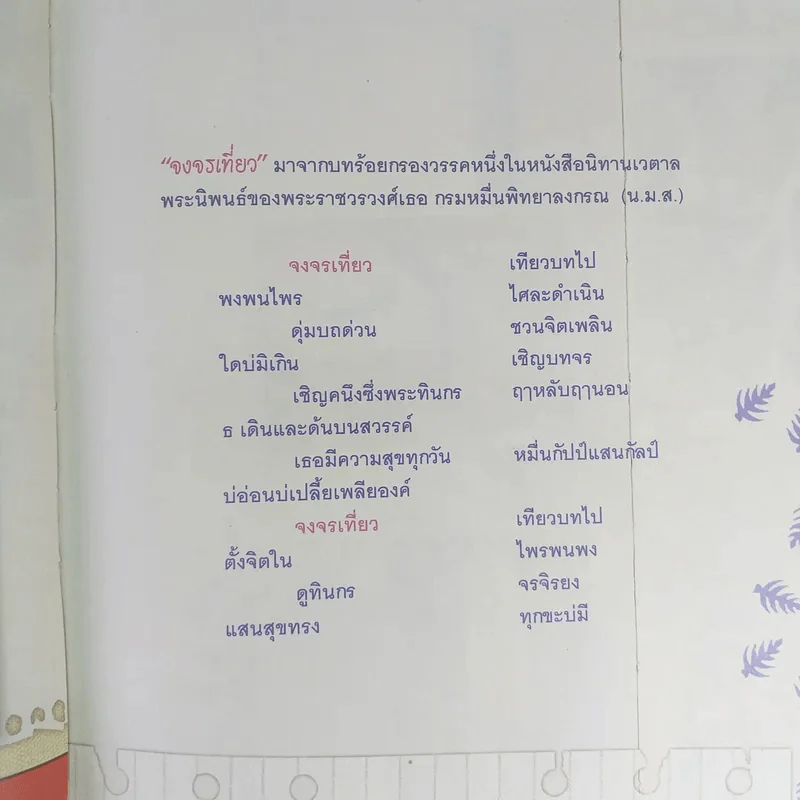 “จงจรเที่ยว” มาจากบทร้อยกรองวรรคหนึ่งในหนังสือนิทานเวตาล
พระนิพนธ์ของพระราชวรวงศ์เธอ กรมหมื่นพิทยาลงกรณ (น.ม.ส.)
จงจรเที่ยว เทียวบทไป
พงพนไพร ไศละดำเนิน
ดุ่มบถด่วน ชวนจิตเพลิน
ใดบ่มิเกิน เชิญบทจร
เชิญคนึงซึ่งพระทินกร ฤๅหลับฤๅนอน
ธ เดินและด้นบนสวรรค์
เธอมีความสุขทุกวัน หมื่นกัปป์แสนกัลป์
บ่อ่อนบ่เปลี้ยเพลียองค์
จงจรเที่ยว เทียวบทไป
ตั้งจิตใน ไพรพนพง
ดูทินกร จรจิรยง
แสนสุขทรง ทุกขะบ่มี